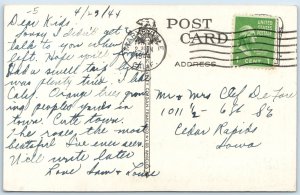 4/23/44
Dear Kids:
Sorry I didn't get to
talk to you when
left. Hope you
had a swell trip
was plenty tired I like
Calif. Orange trees grow
ing people's yards in
town. Cute town.
the roses, the most
beatuful I've ever seen.
Will write later
Love Sam & Louise
POST
CARD
ADDRESS
1 CENT 1
Mr & Mrs Clif DeFore
1011 ½ - 6th St
Cedar Rapids
Iowa